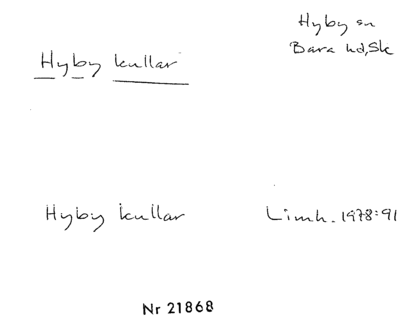 Hyby kullar
Hyby sn
Bara hd, Sk
Hyby kullar
Limh. 1978:91
Nr 21868